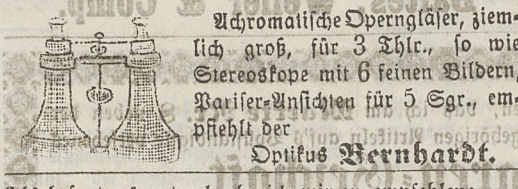 Achromatische Operngläser, ziem-
lich groß, für 3 Thlr., so wie
Stereoskope mit 6 feinen Bildern,
Pariser-Ansichten für 5 Sgr., em-
pfiehlt der
Optikus Bernhardt.